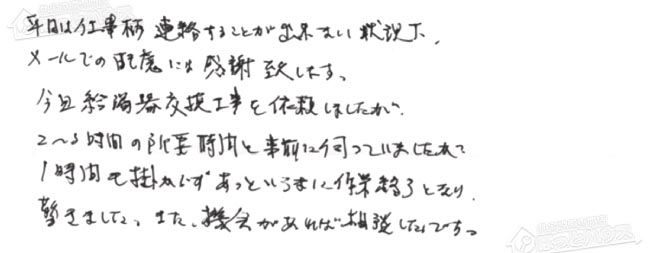 平日は仕事柄 連絡することが出来ない状況下、
メールでの配慮には感謝致します。
今回給湯器交換工事を依頼しましたが、
2〜3時間の所要時間と事前に伺っていましたが
1時間も掛からず あっという間に作業終了となり、
驚きました。また、機会があれば相談したいです。